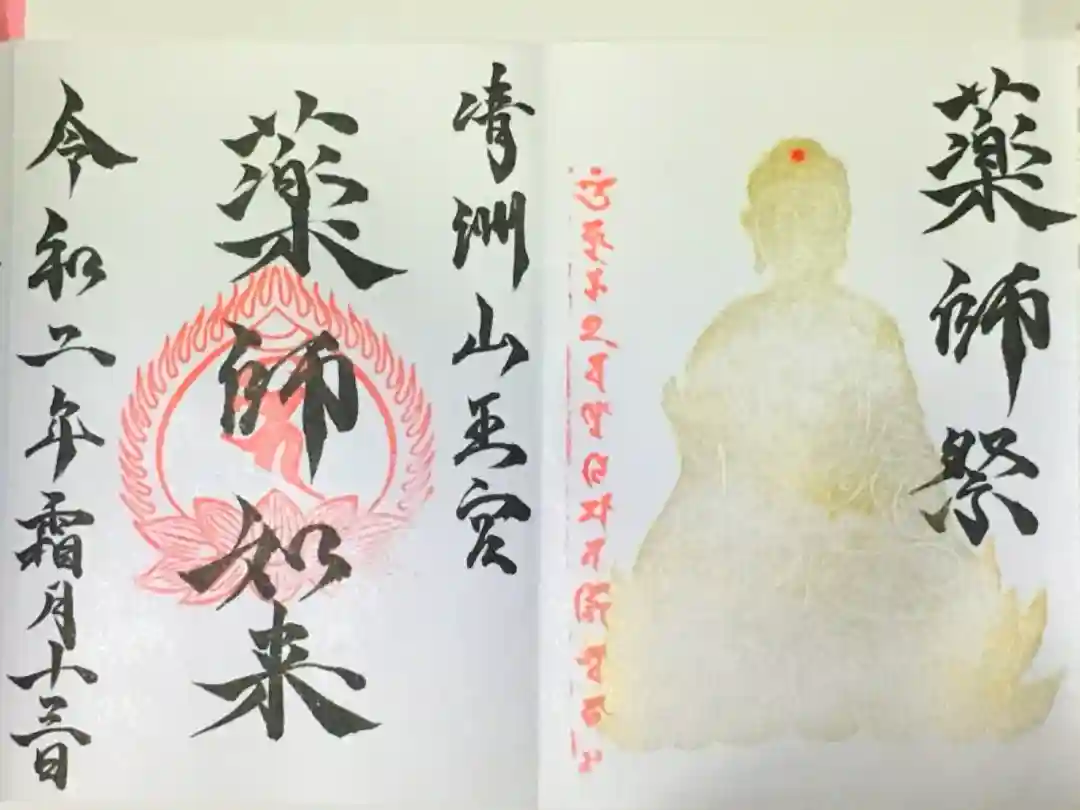 薬師祭
清洲山王宮
薬師如来
令和二年霜月十三日